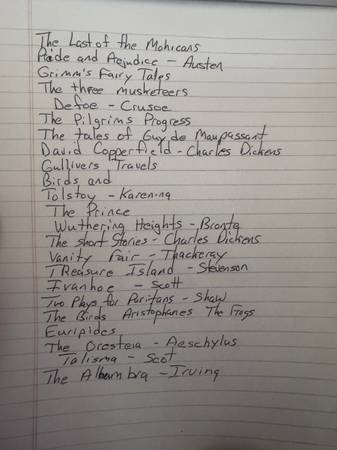 The Last of the Mohicans
Pride and Prejudice - Austen
Grimm's Fairy Tales
The three musketeers
Defoe - Crusoe
The Pilgrims Progress
The tales of Guy de Maupassant
David Copperfield - Charles Dickens
Gullivers Travels
Birds and
Tolstoy - Karenina
The Prince
Wuthering Heights - Bronta
The short Stories - Charles Dickens
Vanity Fair - Thackeray
TReasure Island - Stevenson
Ivanhoe - Scott
Two Plays for Puritans - Shaw
The Birds Aristophanes The Frogs
Euripides
The Oresteia - Aeschylus
Talisma - Scot
The Alhambra - Irving